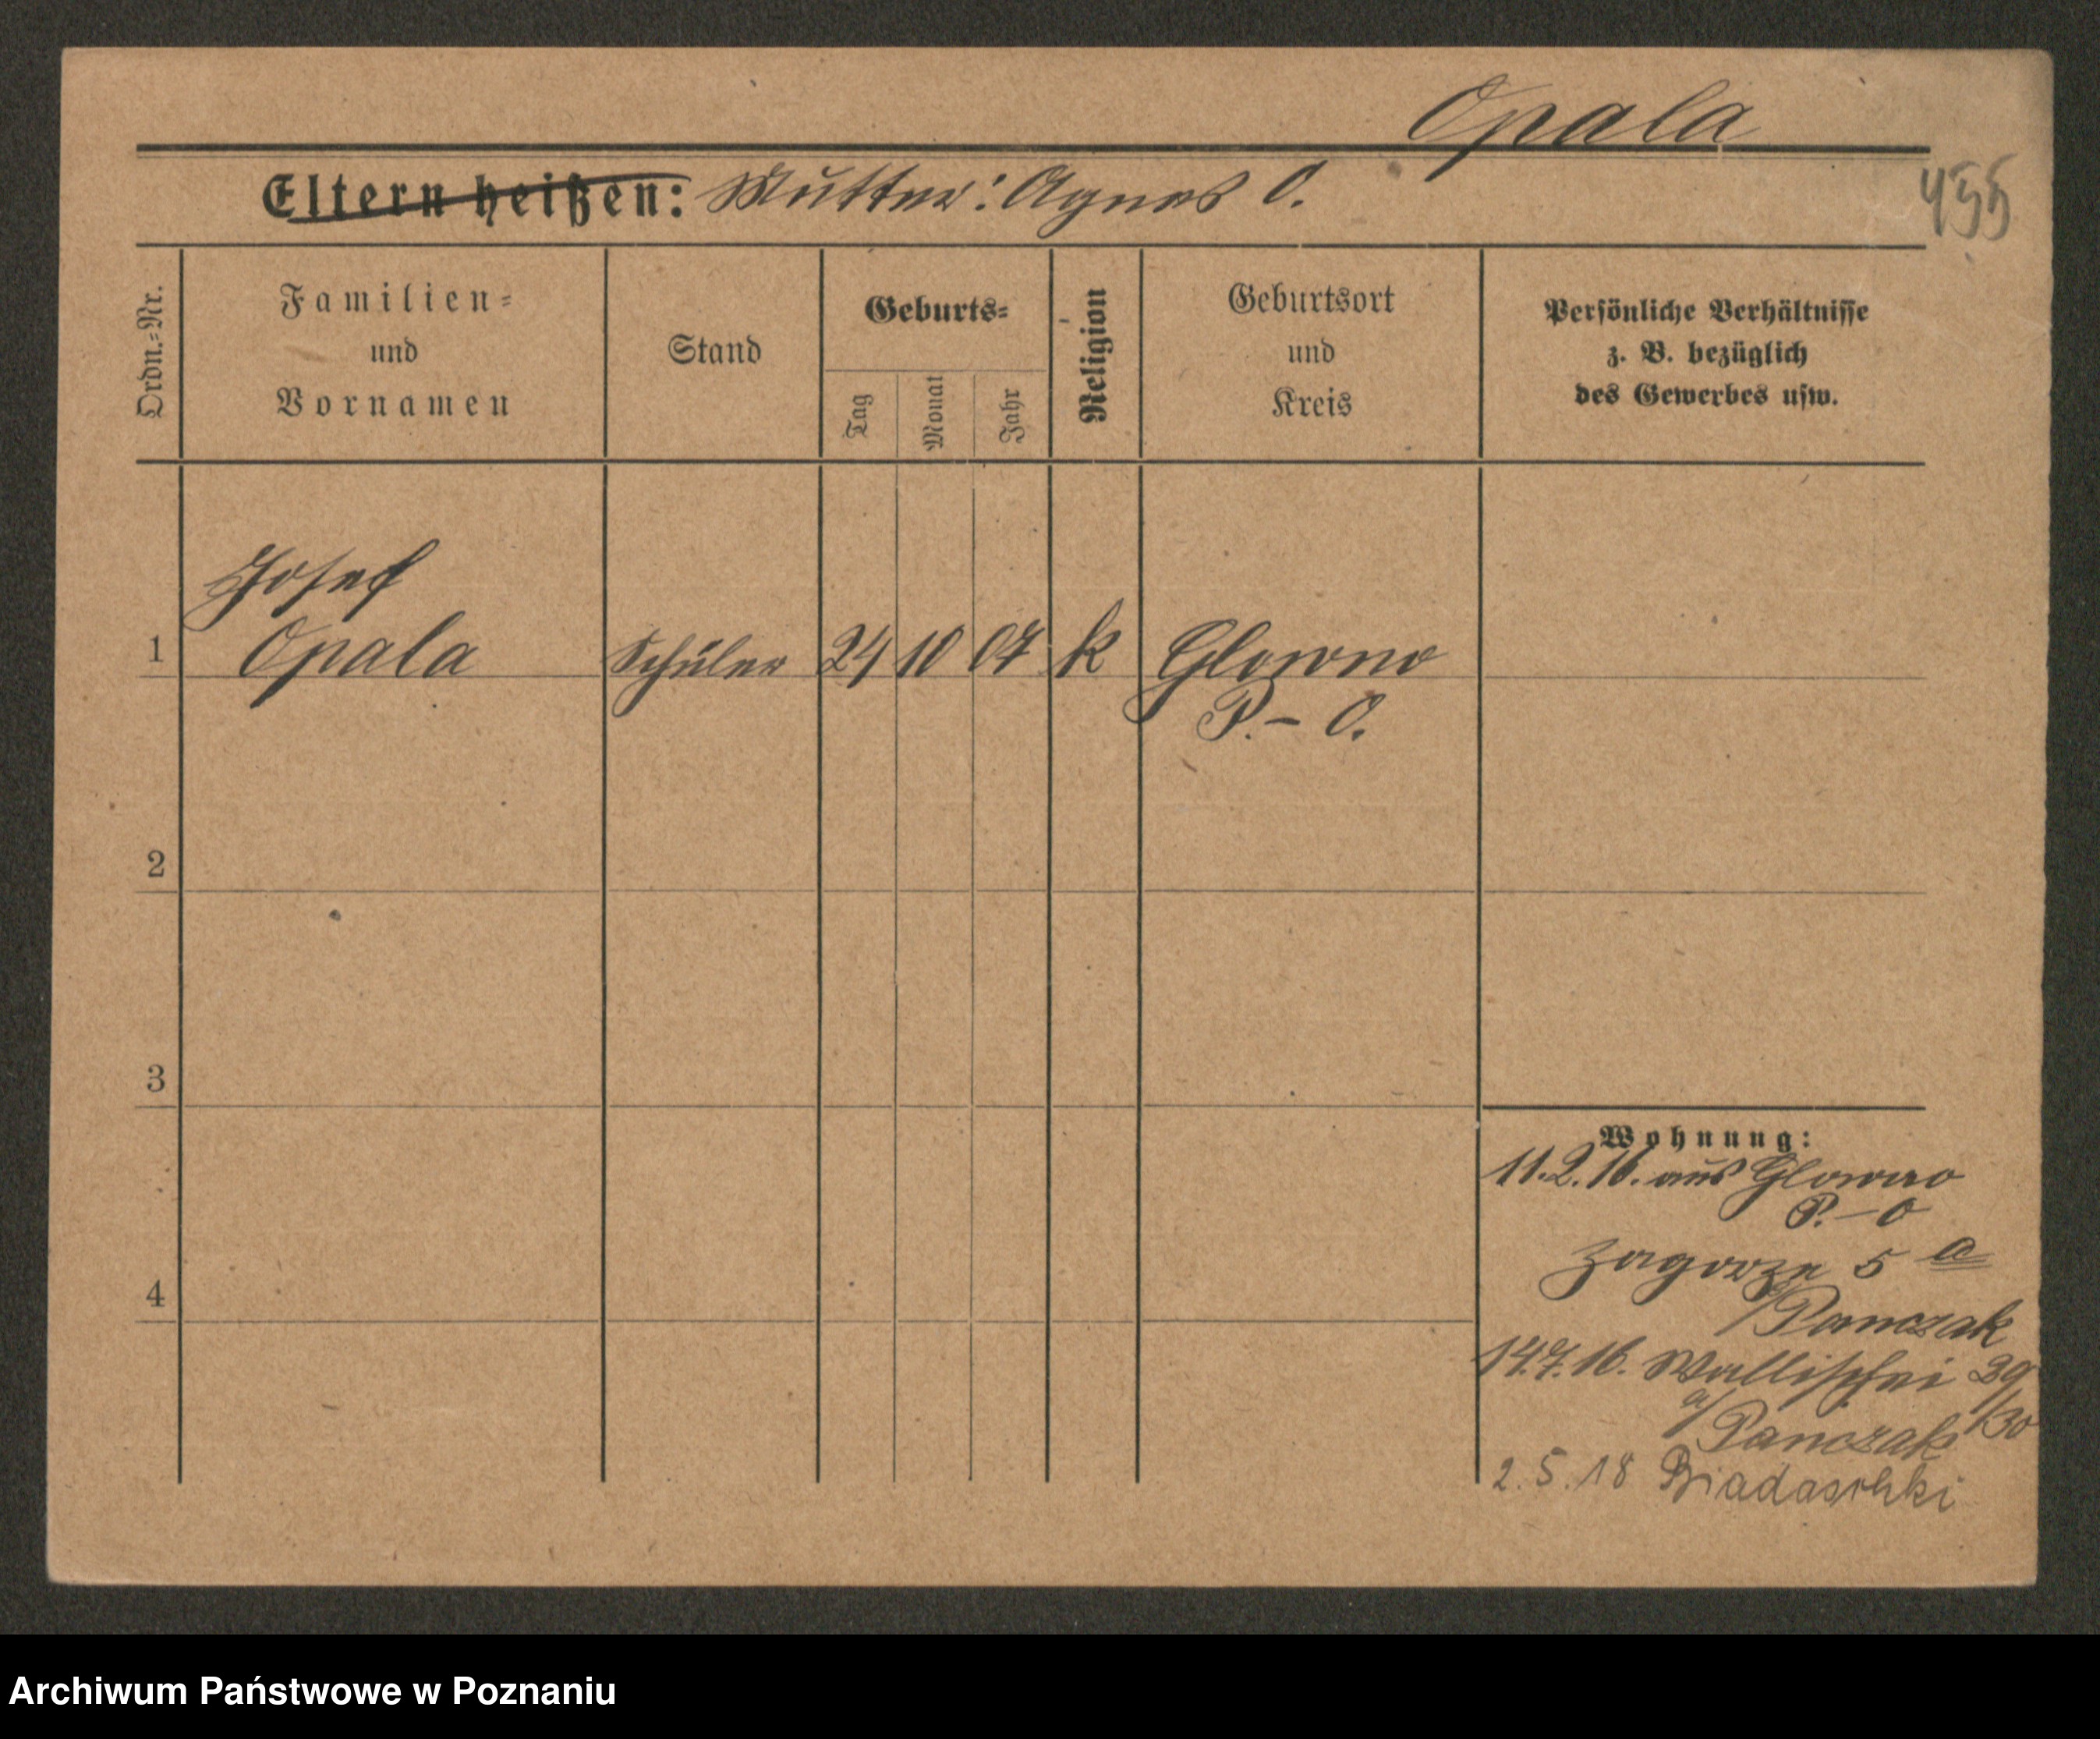 Opala
Eltern heißen: Mutter: Agnes O.
455
Ordn.-Nr.
Familien-
und
Vornamen
Stand
Geburts-
Tag
Monat
Jahr
Religion
Geburtsort
und
Kreis
Persönliche Verhältnisse
z. B. bezüglich
des Gewerbes usw.
Josef
1 Opala Schüler 24 10 07 k Glowno
P. - O.
2
3
4
Wohnung:
11.2.16. aus Glowno
P. - O
Zagorze 5 a
Panczak
14.7.16. Wallischei 29/30
b/ Panczak
2.5.18 Biadaschki
Archiwum Państwowe w Poznaniu